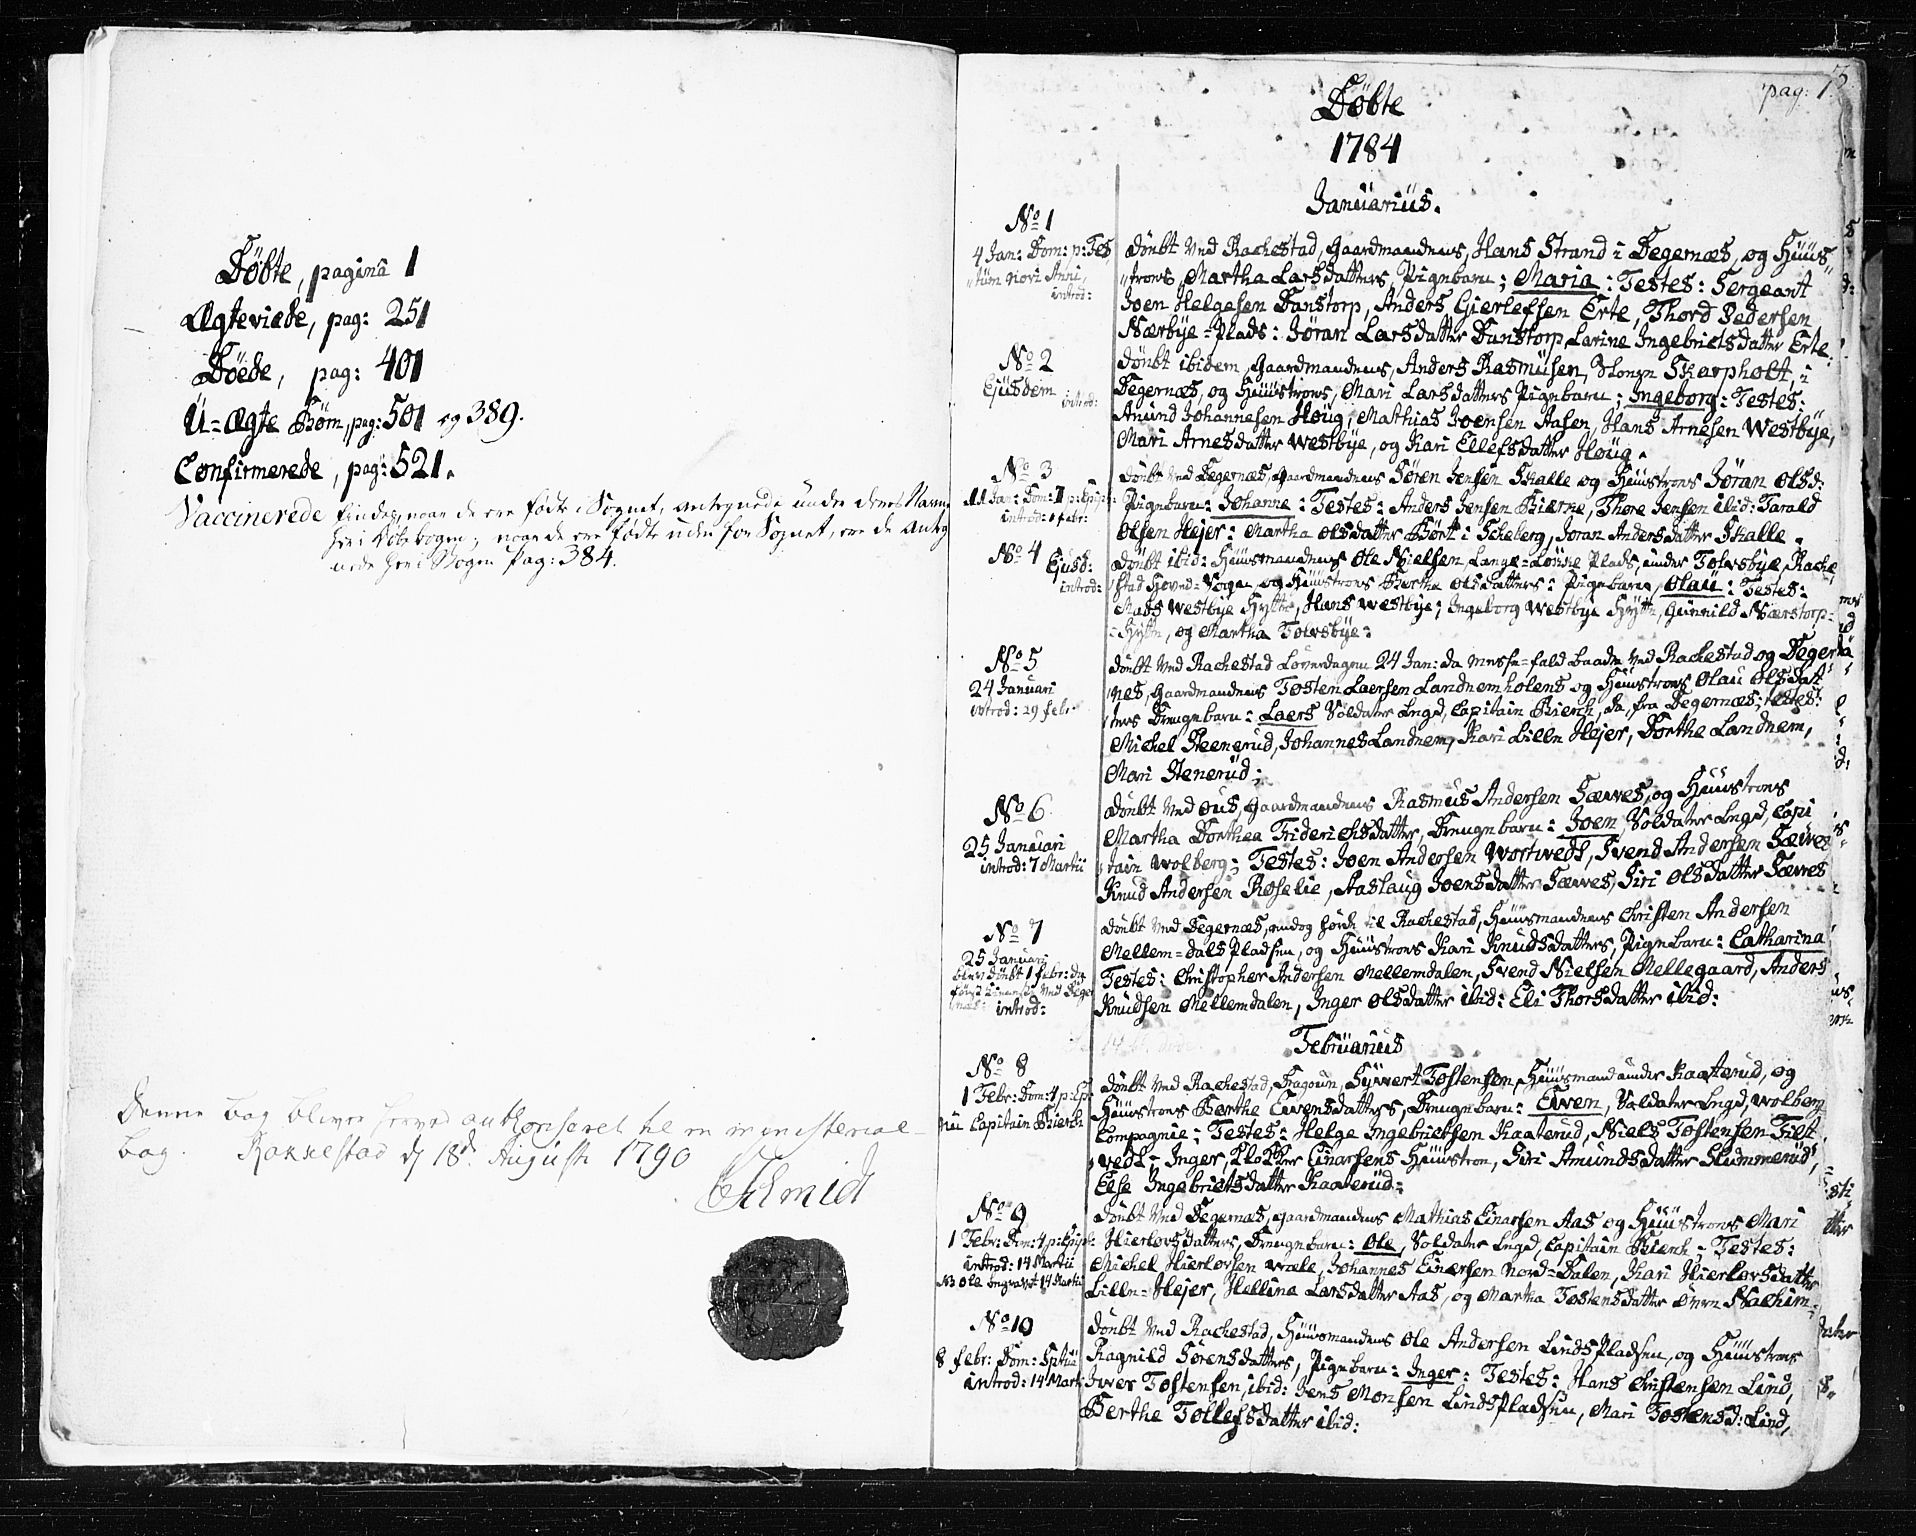 Döbte, pagina 1
Ægteviede, pag: 251
Döede, pag: 401
Ü=Ægte Börn, pag: 501 og 389.
Confirmerede, pag: 521.
Vaccinerede findes, naar de ere födte i Sognet, antegnede under deres Navne
her i Döbebogen; naar de ere födte uden for Sognet, ere de anteg
nede her i Bogen Pag: 384.
Denne bog bliver herved authoriseret til en ministerial-
bog. Rakkestad d 18d Augusti 1790
Schmidt
pag: 1.
Döbte
1784
Januarius.
No 1
4 Jan: Dom: p: Fes
tum novi Anni
introd:
döbt ved Rachestad, Gaardmandens, Hans Strand i Degernæs, og Hüus
trons, Martha Larsdatters, Pigebarn; Maria: Testes: Sergeant
Joen Helgesen Danstorp, Anders Gierlefsen Erte, Thord Pedersen
Nærbye-Plads: Jöran Larsdatter Danstorp, Larine Ingebrietsdatter Erte.
No 2
Ejüsdem
introd:
döbt ibidem, Gaardmandens, Anders Rasmüsen, Skarpholt, i
Degernæs, og Hüustrons, Mari Larsdatters Pigebarn; Ingeborg: Testes:
Amünd Johannesen Höüg, Mathias Joensen Aasen, Hans Arnesen Westbye,
Mari Arnesdatter Westbye, og Kari Ellefsdatter Höüg.
No 3
11 Jan: Dom: 1 p: Epiph:
introd: febr:
döbt ved Degernæs, Gaardmandens Sören Jensen Skalle og Hüustrons Jöran Olsd:
Pigebarn: Johanne: Testes: Anders Jensen Bierke, Thore Jensen ibid: Tarald
Olsen Hejer: Martha Olsdatter Bört i Eideberg, Joran Andersdatter Skalle.
No 4
Ejusd:
introd:
döbt ibid: Hüusmandens Ole Nielsen Lange-Lökke Plads, under Tolvsbye, Rache
stad Hoved-Sogn, og Hüustrons Berthe Olsdatters: Pigebarn, Olaü: Testes:
Mads Westbye Hytte, Hans Westbye; Ingeborg Westbye Hytte, Günnild Nærstorp-
Hytte, og Martha Tolvsbye:
No 5
24 Januari
introd: 29 febr:
döbt ved Rachestad Löverdagen 24 Jan: da messe-fald baade ved Rachestad og Deger
nes, Gaardmandens Tosten Laersen Landnemholens og Hüustrons Olau Olsdat
ters Drengebarn: Laers Soldater Lægd, Capitain Bierch, da, fra Degernæs; testes:
Michel Steenerud, Johannes Landnem, Kari Lille Hejer, Dorthe Landnem,
Mari Stenerüd;
No 6.
25 Januari
introd: 7 Martii
döbt ved ous, Gaardmandens Rasmus Andersen Sæves, og Hüustrons
Martha Dorthea Friderichsdatter, Drengebarn: Joen, Soldater Lægd, Capi
tain Wolberg; Testes: Joen Andersen Wortwedt, Svend Andersen Sæves
Knud Andersen Roselie, Aaslaug Joensdatter Sæves, Siri Olsdatter Sæves
No 7
25 Januari
blev döbt 1 febr: dog
ved Deger
næs:
introd:
döbt ved Degernæs, endog hörde til Rachestad, Hüusmandens Christen Andersen
Mellem-dals Pladsen, og Hüustrons Kari Knudsdatters, Pigebarn: Catharina
Testes: Christopher Andersen Mellemdalen, Svend Nielsen Mellegaard, Anders
Knudsen Mellemdalen, Inger Olsdatter ibid: Eli Thorsdatter ibid:
Februarius
No 8
1 Febr: Dom: 4 p: Ep:
nu Capitain Bierch
döbt ved Rachestad, Dragoun, Syvert Tostensen, Hüusmand under Kaaterud, og
Hüustrons Berthe Evensdatters, Drengebarn: Even, Soldater Lægd, Wolberg
Compagnie; Testes: Helge Ingebrietsen Kaaterud, Niels Tostensen Fiet
vedt - Inger, Klokker Einarsens Hüustron, Siri Amundsdatter Slümmerüd,
Else Ingebrietsdatter Kaaterud:
No 9
1 Febr: Dom: 4 p: Epiph:
introd: 14 Martii
NB Ole begravet 14 Martii
döbt ved Degernæs, Gaardmandens Mathias Einarsen Aas og Hüustrons Mari
Hierlovsdatters, Drengebarn: Ole, Soldater Lægd, Capitain Bierch - Testes:
Michel Hierlovsen Wæle, Johannes Einersen Nord-Dalen, Kari Hierlovsdatter
Lille-Hejer, Hellina Larsdatter Aas, og Martha Tostensdatter övre Nachim.
No 10
8 febr: Dom: Sptüü
introd: 14 Marti
döbt ved Rachestad, Hüusmandens Ole Andersen Linds Pladsen, og Hüustrons
Ragnild Sörensdatters, Pigebarn: Inger: Testes: Hans Christensen Lind,
Iver Tostensen, ibid: Jens Monsen Linds Pladsen, Mari Tostensd: Lind,
Berthe Tollefsdatter ibid: